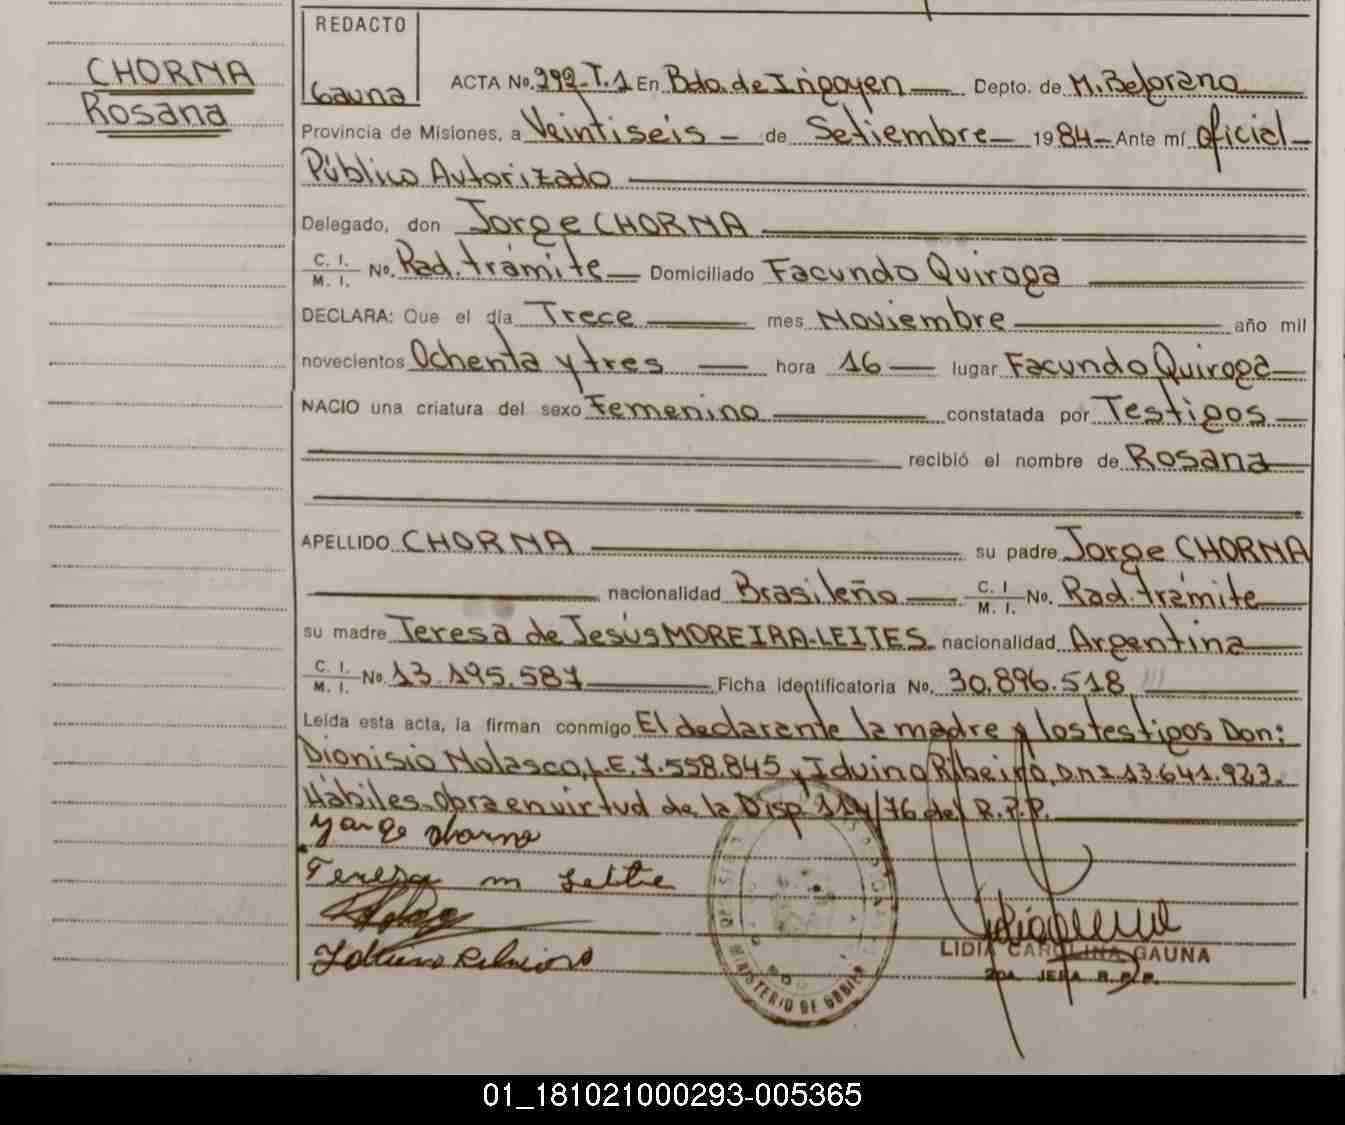 REDACTO
Gauna
CHORNA
Rosana
ACTA No. 292-T.1 En Bdo. de Irigoyen Depto. de M. Belgrano
Provincia de Misiones, a Veintiseis - de Setiembre 1984 Ante mí Oficial
Público Autorizado
Delegado, don Jorge CHORNA
C. I. / M. I. No. Rad. trámite Domiciliado Facundo Quiroga
DECLARA: Que el día Trece mes Noviembre año mil
novecientos Ochenta y tres hora 16 lugar Facundo Quiroga
NACIO una criatura del sexo Femenino constatada por Testigos
recibió el nombre de Rosana
APELLIDO CHORNA su padre Jorge CHORNA
nacionalidad Brasileño C. I / M. I. No. Rad. trámite
su madre Teresa de Jesús MOREIRA-LEITES nacionalidad Argentina
C. I. / M. I. No. 13.195.587 Ficha identificatoria No. 30.896.518
Leída esta acta, la firman conmigo El declarante la madre y los testigos Don:
Dionisio Nolasco, L.E. 7.558.845 y Iduino Ribeiro, D.N.I. 13.641.923.
Hábiles. Obra en virtud de la Disp. 114/76 del R.P.P.
Teresa m Leite
MINISTERIO DE GOBIER
LIDIA CAROLINA GAUNA
2DA. JEFA R. P. P.
01_181021000293-005365